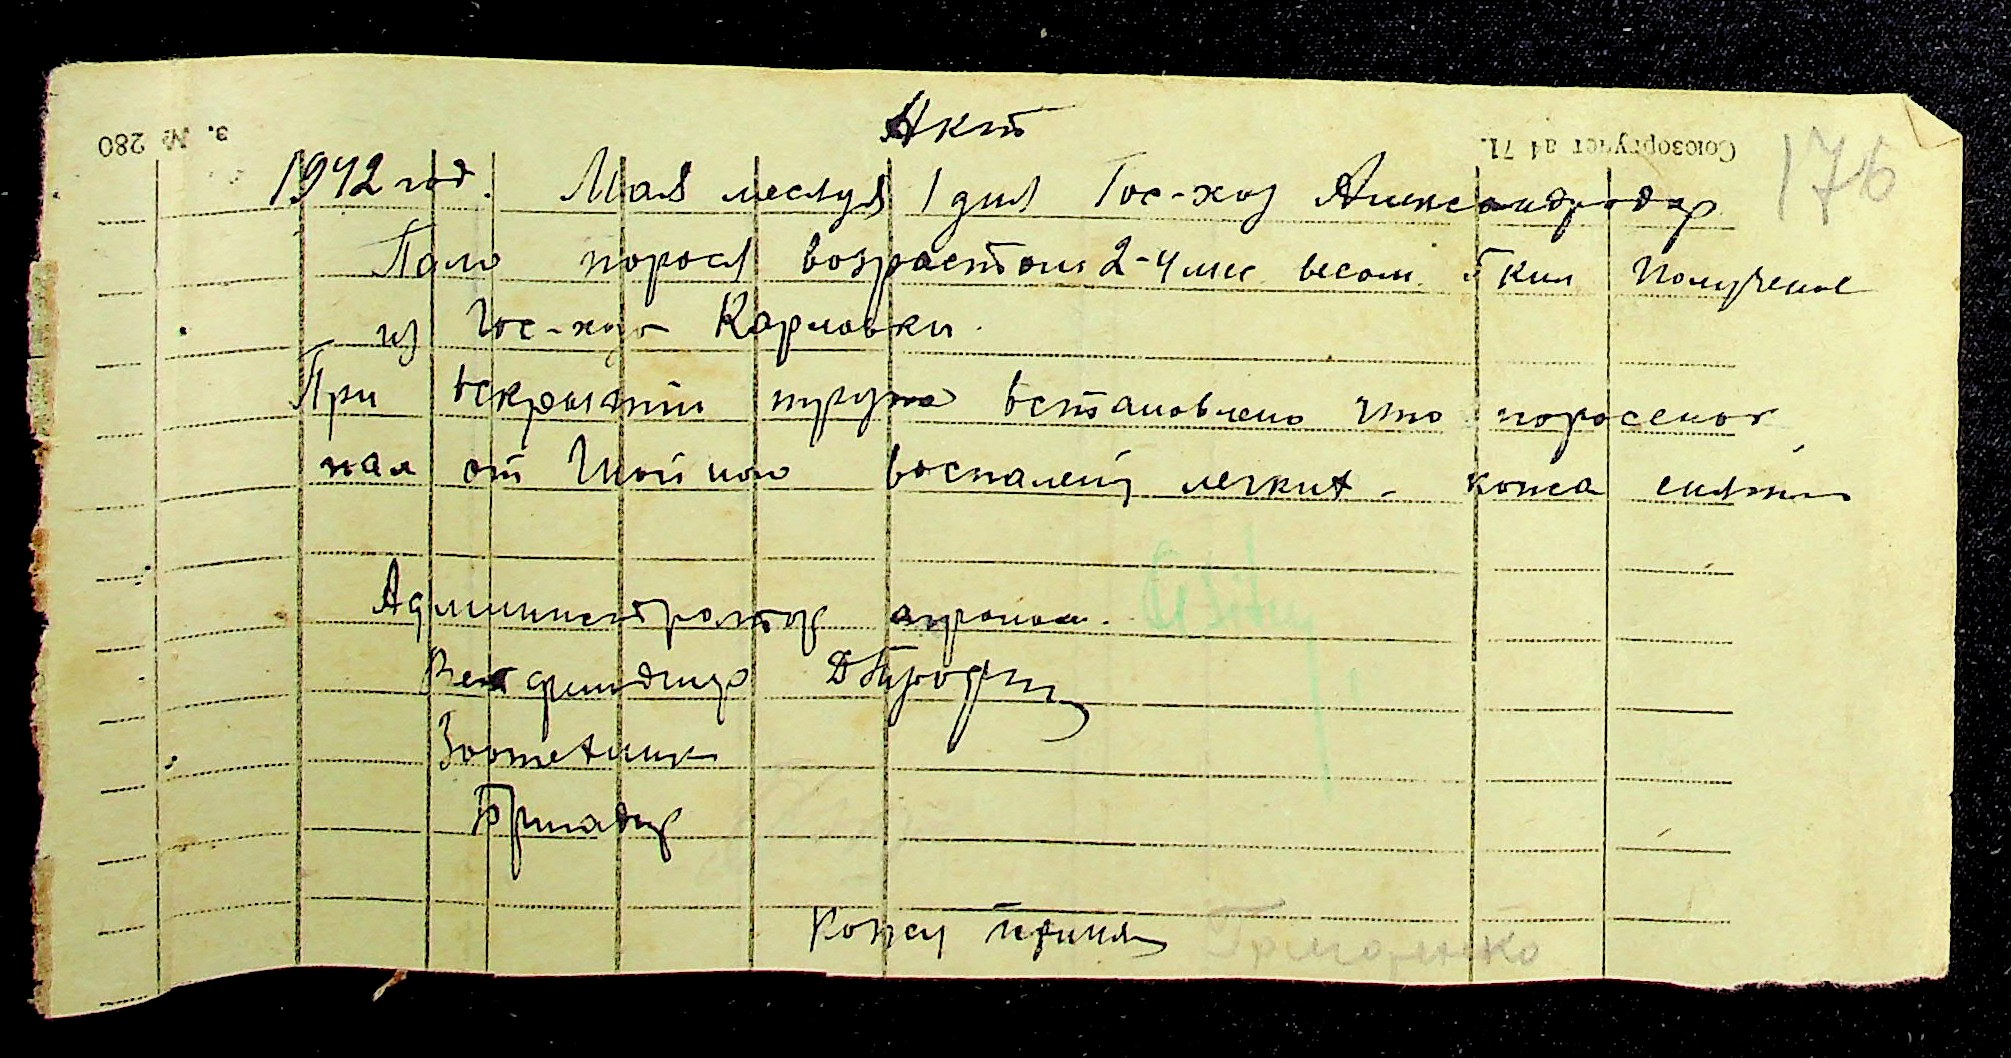 Акт
з. № 280
Союзоргучет а4 71.
176
1942 год. Мая месяця 1 дня Гос-хоз Александродар
Пало порося возрастом 2-4 мес весом кил Полученое
из Гос-хоза Карловки.
При вскрытии трупа встановлено что поросенок
пал от воспаления легких - кожа снята
Администратор агроном.
Ветфельдшер
Зоотехник
Бригадир
Кожу принял